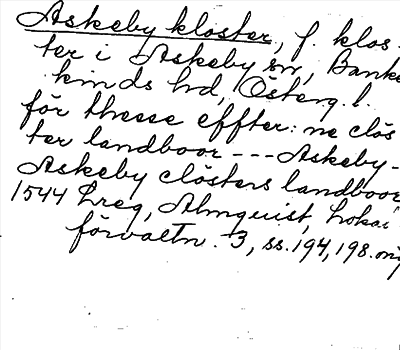 Askeby kloster, f. klos-
ter i Askeby sn, Banke
kinds hd, Österg. l.
för thesse effter: ne clös
ter landboor --- Askeby-
Askeby clösters landboor
1544 Lreg, Almquist, Lokal
förvaltn. 3, ss. 194, 198.